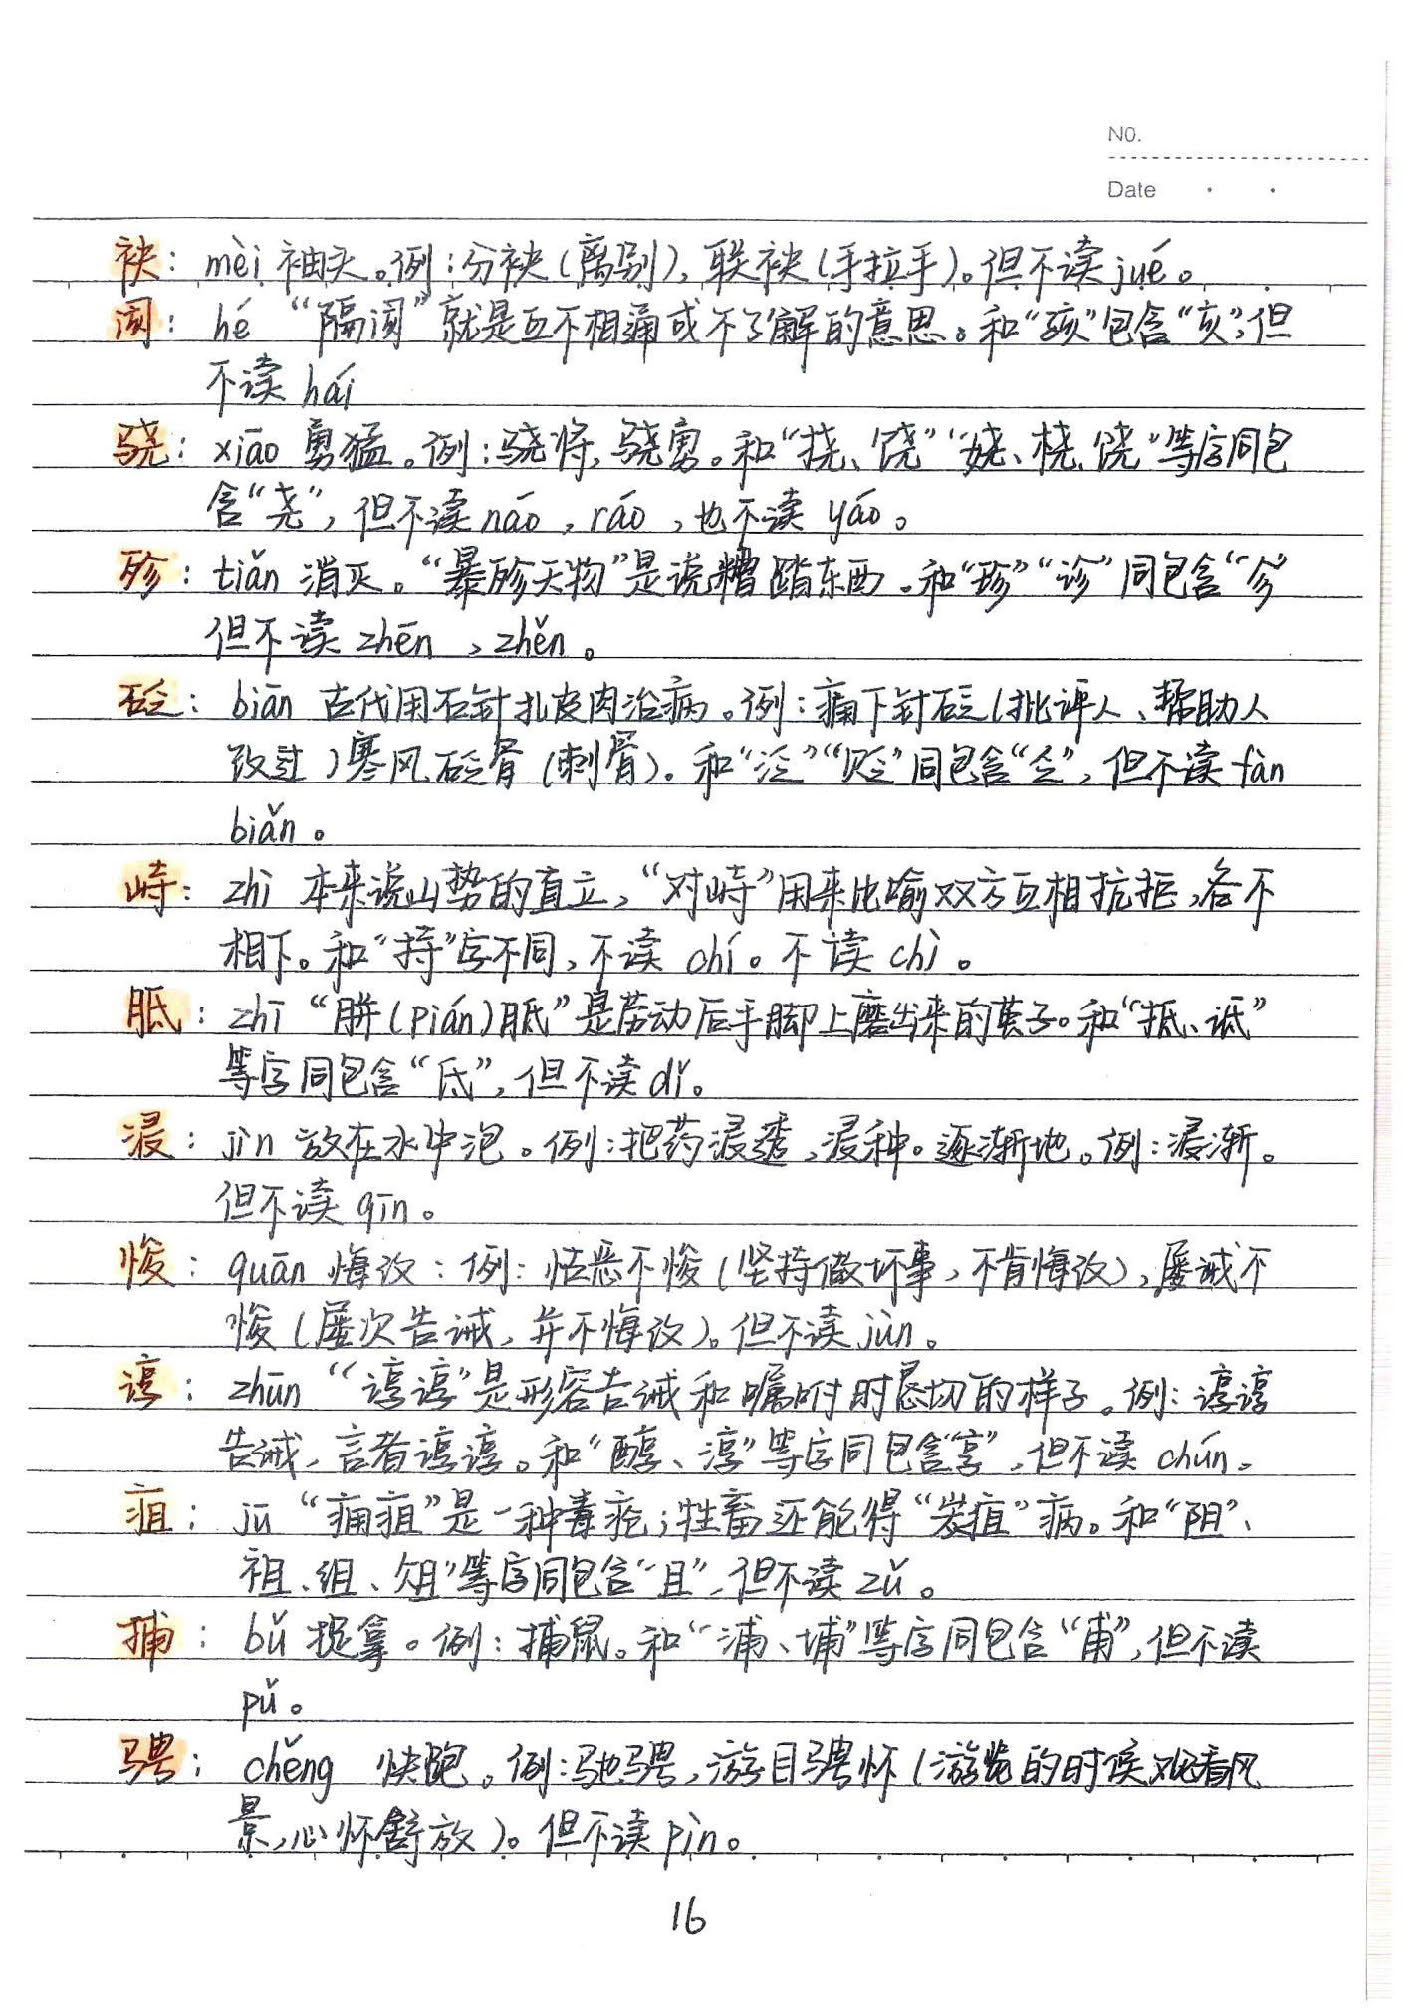 NO.
Date
袂：mèi 袖头。例：分袂(离别)，联袂(手拉手)。但不读jué。
阂：hé “隔阂”就是互不相通或不了解的意思。和“孩”包含“亥”，但
不读 hái
骁：xiāo 勇猛。例：骁将，骁勇。和“挠、饶”“娆、桡、饶”等字同包
含“尧”，但不读náo，ráo，也不读 yáo。
殄：tiǎn 消灭。“暴殄天物”是说糟蹋东西。和“珍”“诊”同包含“㐱”
但不读 zhēn，zhěn。
砭：biān 古代用石针扎皮肉治病。例：痛下针砭(批评人、帮助人
改过)寒风砭骨(刺骨)。和“泛”“贬”同包含“乏”，但不读 fàn
biǎn。
峙：zhì 本来说山势的直立，“对峙”用来比喻双方互相抗拒，各不
相下。和“持”字不同，不读 chí。不读 chì。
胝：zhī “胼(pián)胝”是劳动后手脚上磨出来的茧子。和“抵、诋”
等字同包含“氐”，但不读 dǐ。
浸：jìn 放在水中泡。例：把药浸透，浸种。逐渐地。例：浸渐。
但不读 qīn。
悛：quān 悔改：例：怙恶不悛(坚持做坏事，不肯悔改)，屡诫不
悛(屡次告诫，并不悔改)。但不读 jùn。
谆：zhūn “谆谆”是形容告诫和嘱咐时恳切的样子。例：谆谆
告诫，言者谆谆。和“醇、淳”等字同包含“享”，但不读 chún。
疽：jū “痈疽”是一种毒疮；牲畜还能得“炭疽”病。和“阻”、
祖、组、俎”等字同包含“且”，但不读 zǔ。
捕：bǔ 捉拿。例：捕鼠。和“浦、埔”等字同包含“甫”，但不读
pǔ。
骋：chěng 快跑。例：驰骋，游目骋怀(游览的时候观看风
景，心怀舒放)。但不读 pìn。
16